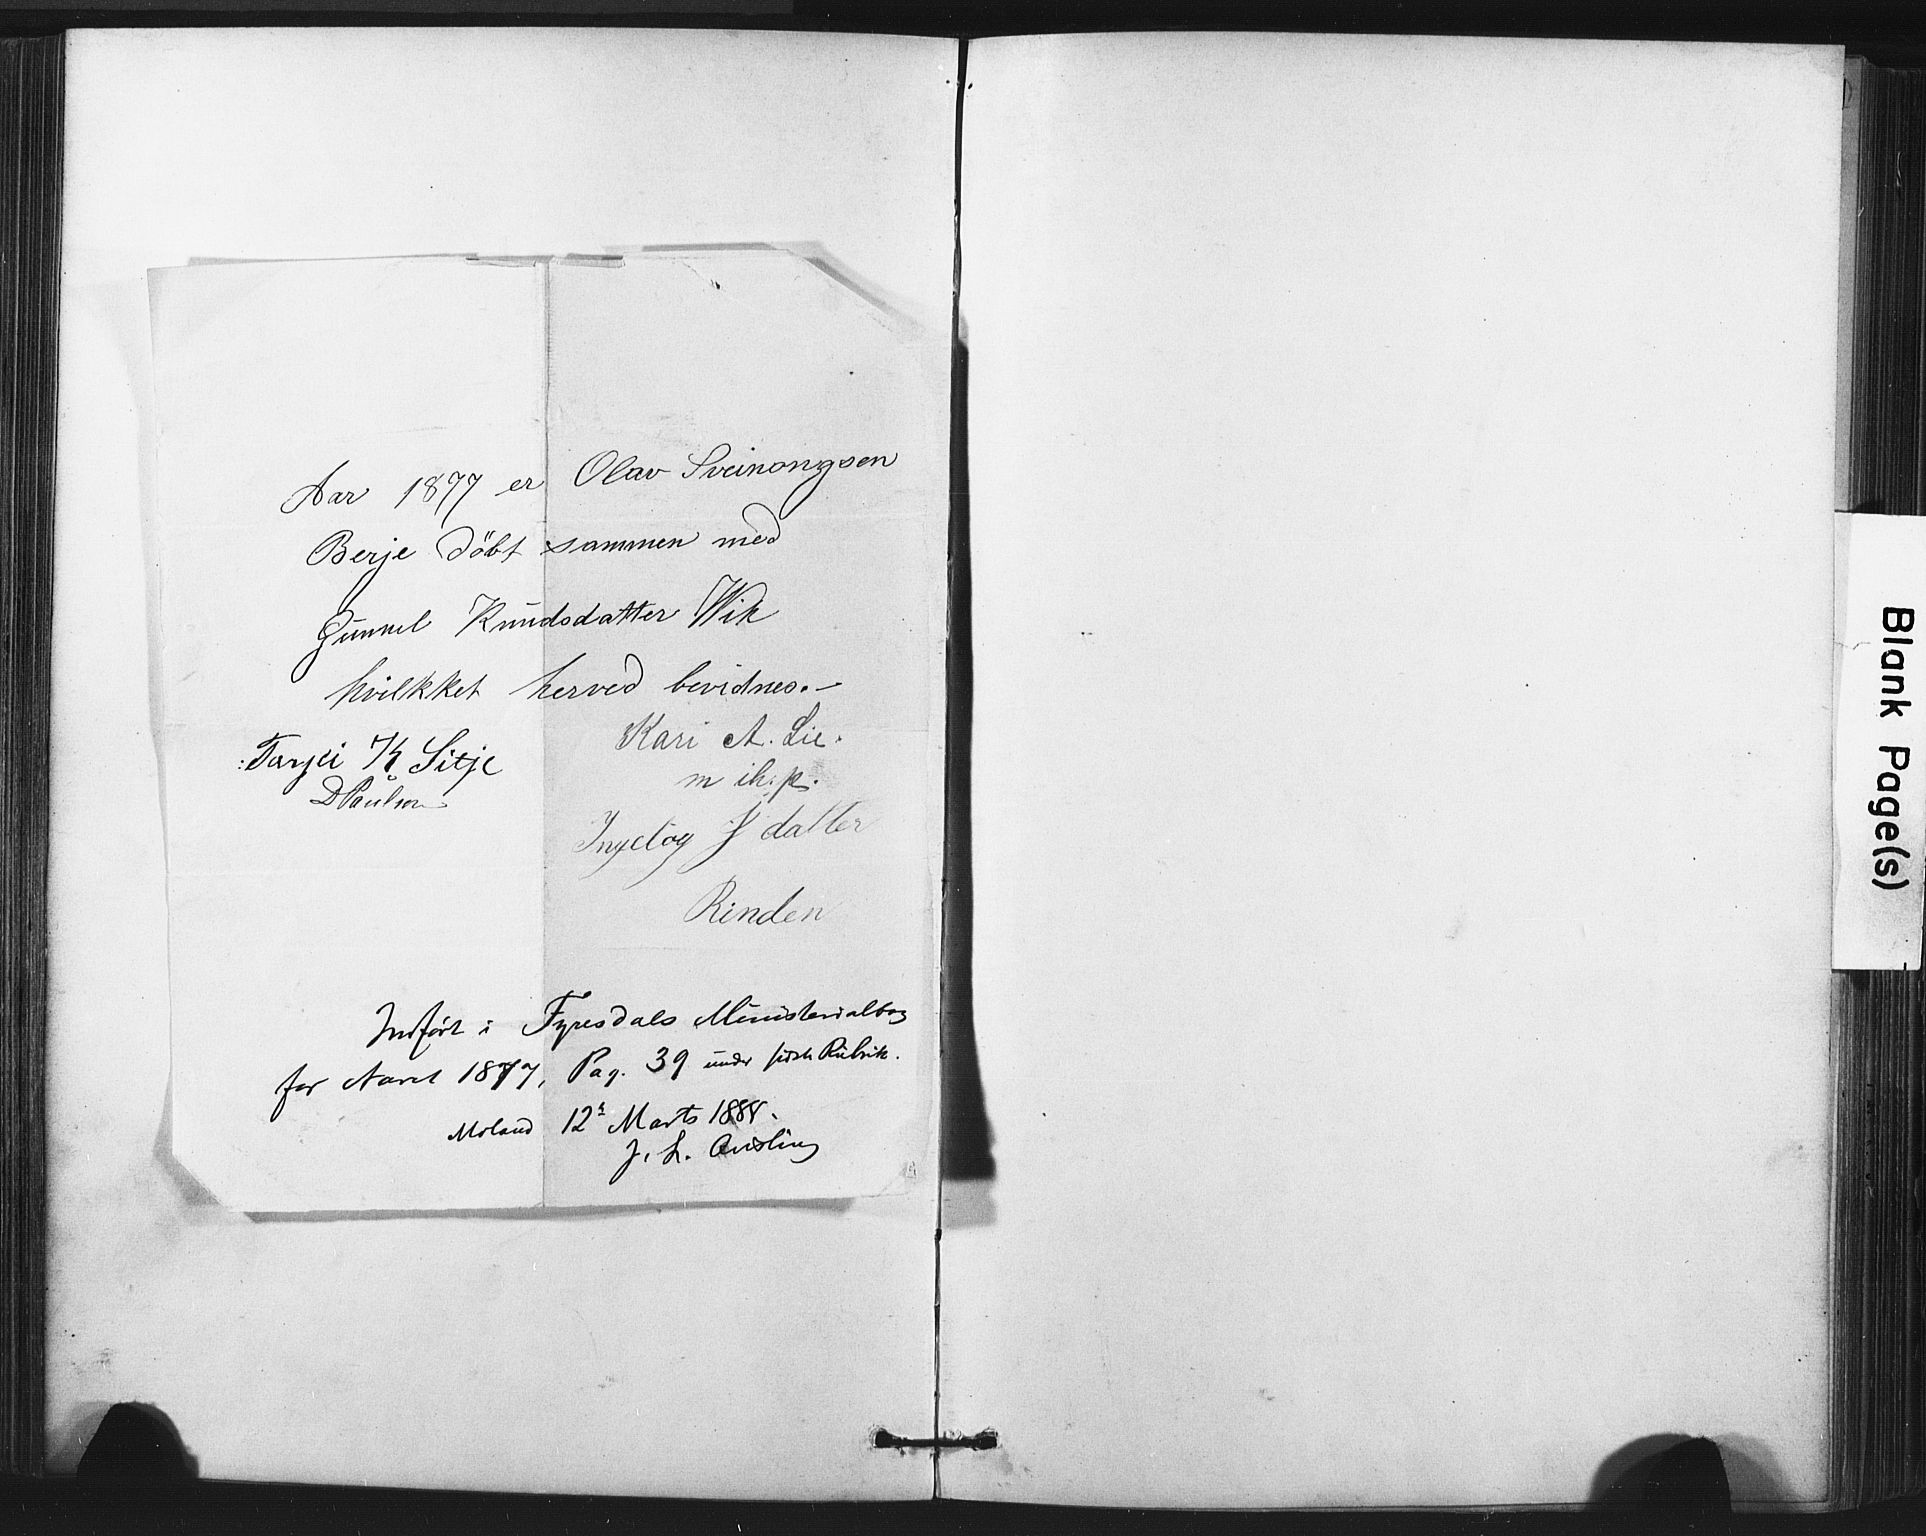 Aar 1877 er Olav Sveinongsen
Berje döbt sammen med
Gunnel Knudsdatter Wik
hvilkket herved bevidnes.—
Tarjei K Sitje
D Paulson
Kari A. Lie.
m ih. p.
Ingebog J datter
Rinden
Indført i Fyresdals Ministerialbog
for Aaret 1877, Pag. 39 under Rubrik.
Moland 12 Marts 1888.
J. L. Quisling
Blank Page(s)